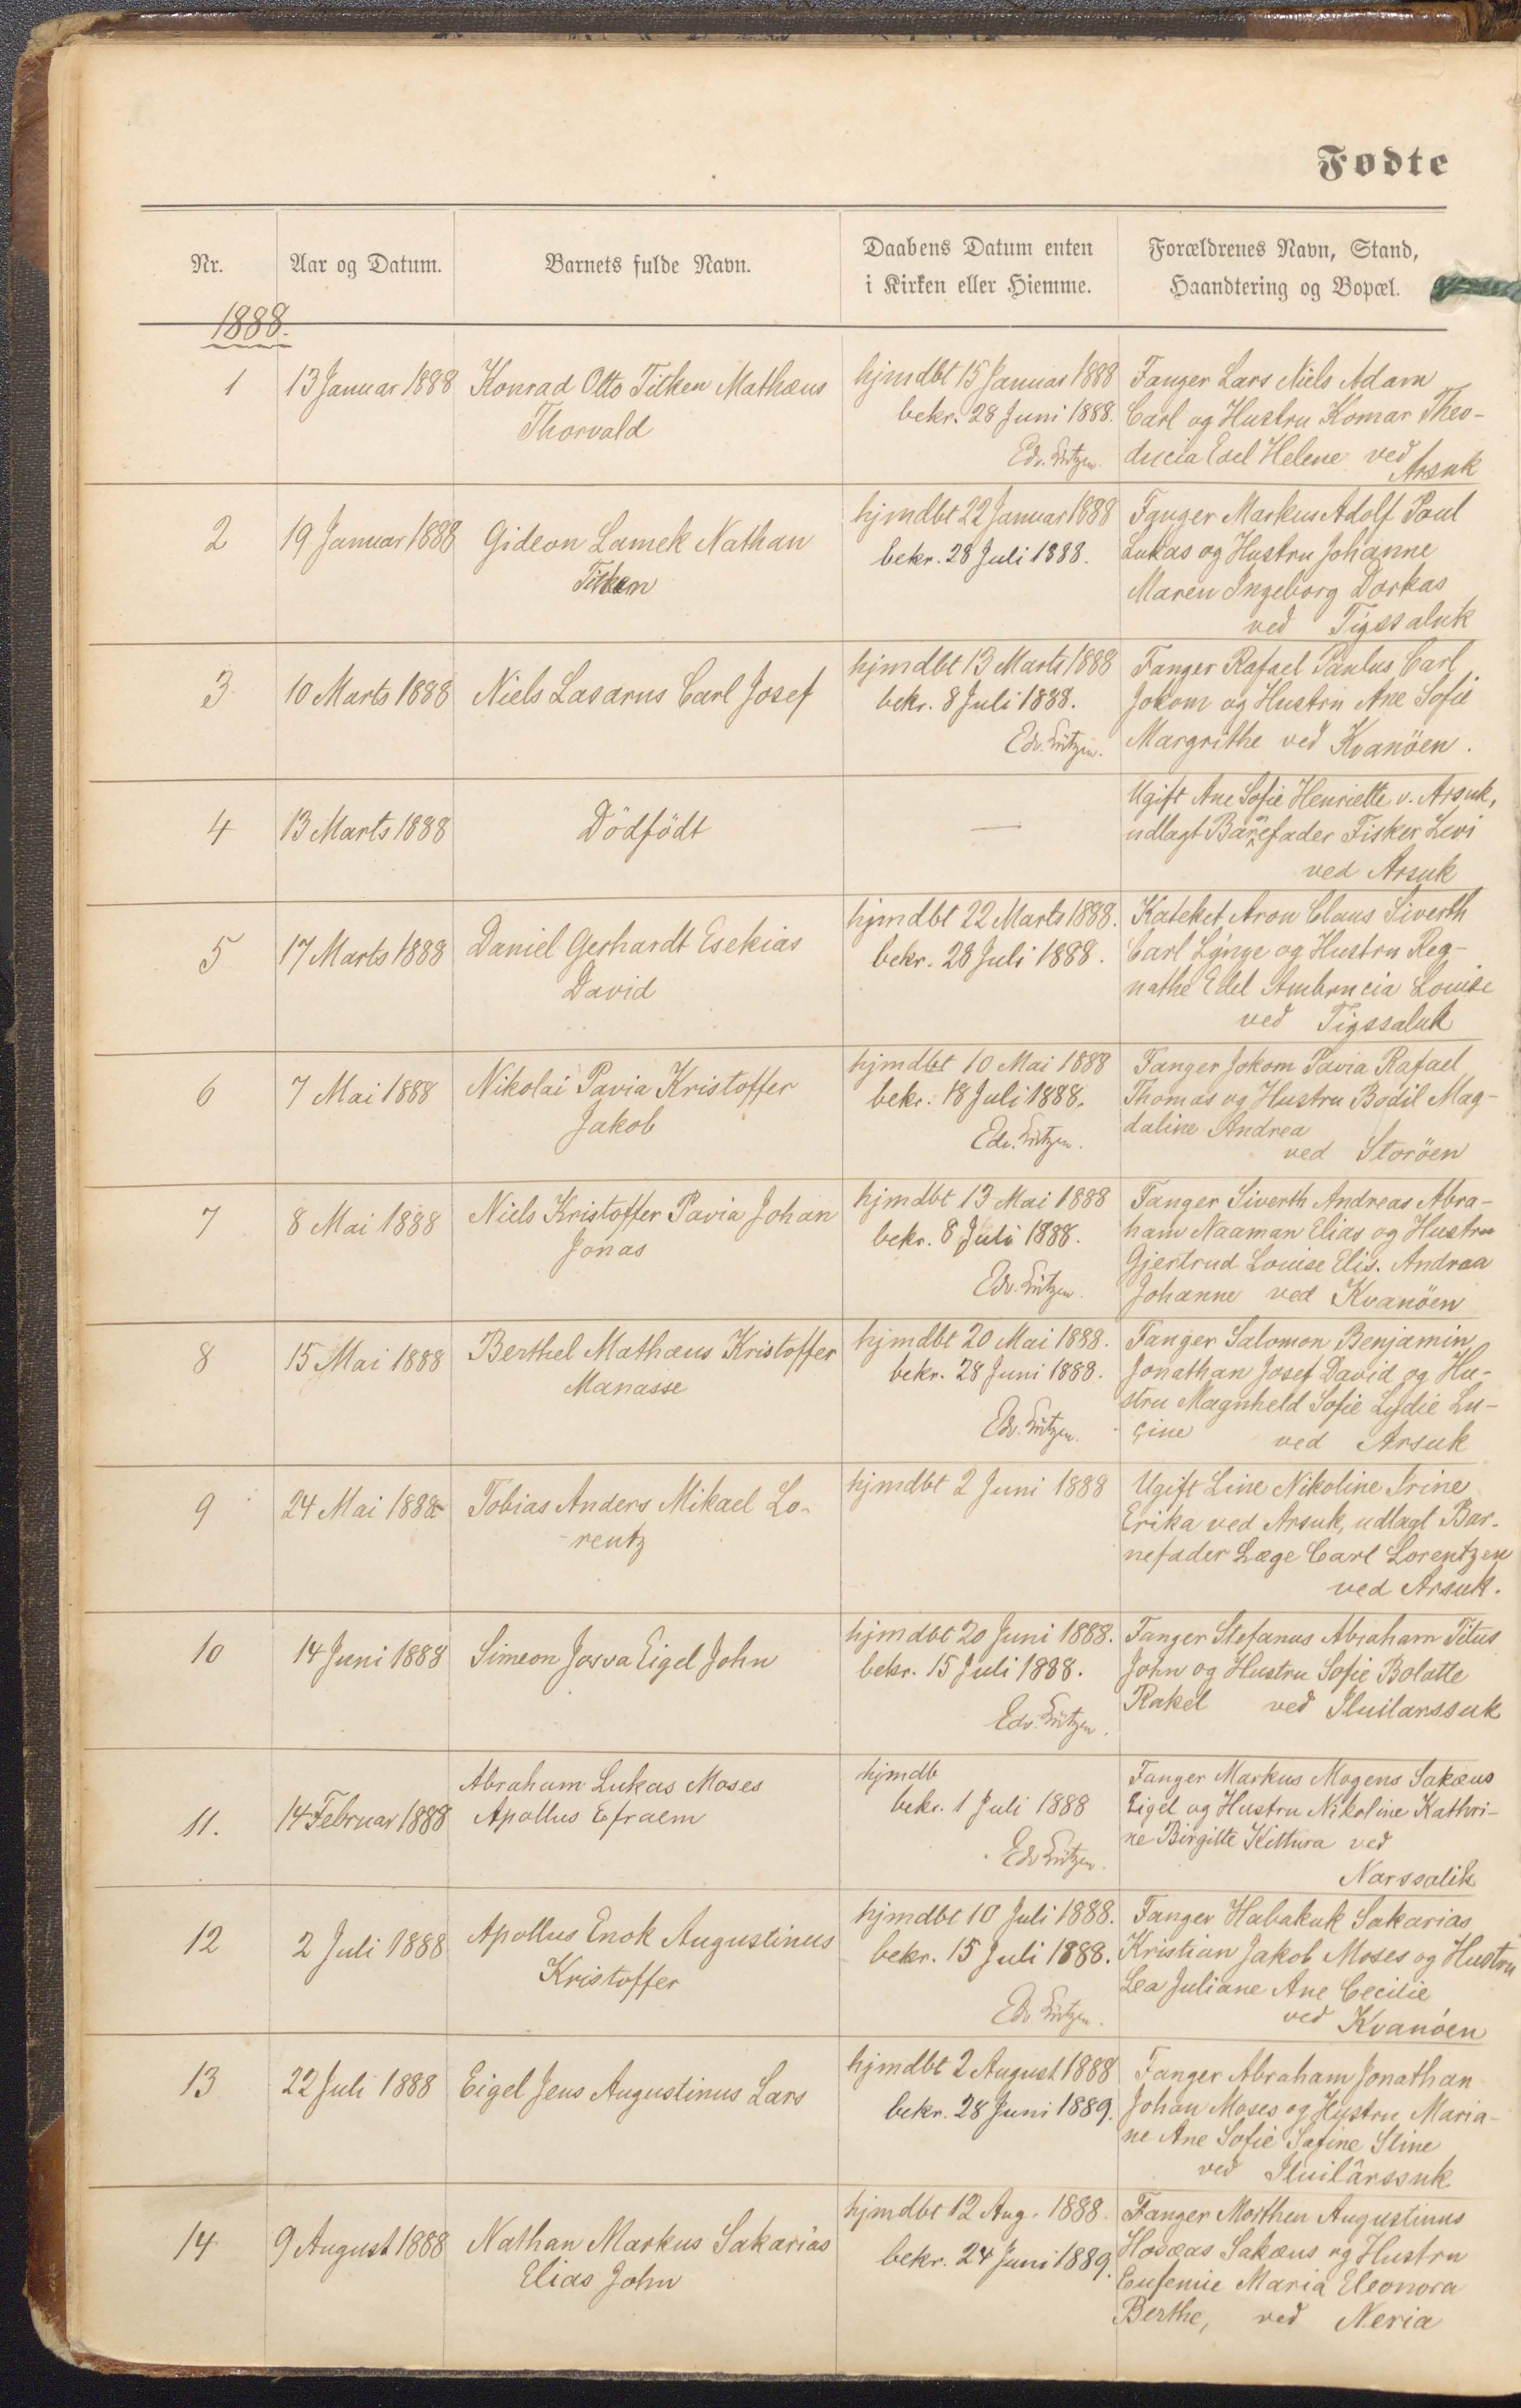 Fødte
Nr.
Aar og Datum.
Barnets fulde Navn.
Daabens Datum enten
i Kirken eller Hiemme.
Forældrenes Navn, Stand,
Haandtering og Bopæl.
1888.
1
13 Januar 1888
Konrad Otto Titken Mathæus
Thorvald
hjmdbt 15 Januar 1888
bekr. 28 Juni 1888.
Edv. Lützen.
Fanger Lars Niels Adam
Carl og Hustru Komar Theo-
ducia Edel Helene ved
Arsuk
2
19 Januar 1888
Gideon Lamek Nathan
Titken
hjmdbt 22 Januar 1888
bekr. 28 Juli 1888.
Fanger Markus Adolf Poul
Lukas og Hustru Johanne
Maren Ingeborg Dorkas
ved Tigssaluk
3
10 Marts 1888
Niels Lasarus Carl Josef
hjmdbt 13 Marts 1888
bekr. 8 Juli 1888.
Edv. Lützen.
Fanger Rafael Paulus Carl
Jokom og Hustru Ane Sofie
Margrithe ved Kvanöen.
4
13 Marts 1888
Dödfödt
—
Ugift Ane Sofie Henriette v. Arsuk,
udlagt Barnefader Fisker Levi
ved Arsuk
5
17 Marts 1888
Daniel Gerhardt Esekias
David
hjmdbt 22 Marts 1888.
bekr. 28 Juli 1888.
Kateket Aron Claus Siverth
Carl Lynge og Hustru Reg-
nathe Edel Ambrucia Louise
ved Tigssaluk
6
7 Mai 1888
Nikolai Pavia Kristoffer
Jakob
hjmdbt 10 Mai 1888
bekr. 18 Juli 1888.
Edv. Lützen.
Fanger Jokom Pavia Rafael
Thomas og Hustru Bodil Mag-
daline Andrea
ved Storöen
7
8 Mai 1888
Niels Kristoffer Pavia Johan
Jonas
hjmdbt 13 Mai 1888
bekr. 8 Juli 1888.
Edv. Lützen.
Fanger Siverth Andreas Abra-
ham Naaman Elias og Hustru
Gjertrud Louise Elis. Andrea
Johanne ved Kvanöen
8
15 Mai 1888
Berthel Mathæus Kristoffer
Manasse
hjmdbt 20 Mai 1888.
bekr. 28 Juni 1888.
Edv. Lützen.
Fanger Salomon Benjamin
Jonathan Josef David og Hu-
stru Magnheld Sofie Lydie Lu-
cine ved Arsuk
9
24 Mai 1888
Tobias Anders Mikael Lo-
rentz
hjmdbt 2 Juni 1888
Ugift Line Nikoline Irine
Erika ved Arsuk, udlagt Bar-
nefader Læge Carl Lorentzen
ved Arsuk.
10
14 Juni 1888
Simeon Josva Eigel John
hjmdbt 20 Juni 1888.
bekr. 15 Juli 1888.
Edv. Lützen.
Fanger Stefanus Abraham Titus
John og Hustru Sofie Bolatte
Rakel ved Iluilarssuk
11.
14 Februar 1888
Abraham Lukas Moses
Apollus Efraem
hjmdb
bekr. 1 Juli 1888
Edv Lützen.
Fanger Markus Mogens Sakæus
Eigel og Hustru Nikoline Kathri-
ne Birgitte Kittura ved
Narssalik
12
2 Juli 1888
Apollus Enok Augustinus
Kristoffer
hjmdbt 10 Juli 1888.
bekr. 15 Juli 1888.
Edv. Lützen.
Fanger Habakuk Sakarias
Kristian Jakob Moses og Hustru
Lea Juliane Ane Cecilie
ved Kvanöen
13
22 Juli 1888
Eigel Jens Augustinus Lars
hjmdbt 2 August 1888
bekr. 28 Juni 1889.
Fanger Abraham Jonathan
Johan Moses og Hustru Maria-
ne Ane Sofie Safine Stine
ved Iluilârssuk
14
9 August 1888
Nathan Markus Sakarias
Elias John
hjmdbt 12 Aug. 1888.
bekr. 24 Juni 1889.
Fanger Morthen Augustinus
Hosæas Sakæus og Hustru
Eufemie Maria Eleonora
Berthe, ved Neria